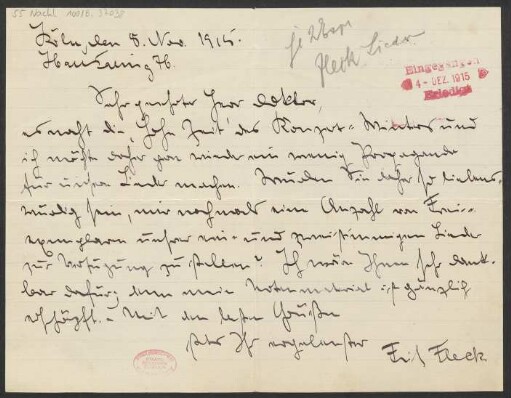 55 Nachl.
Köln, den 5. Nov. 1915.
je 2 Expl.
Fleck. Lieder
Eingegangen
4 - DEZ. 1915
Erledigt
Sehr geehrter Herr Doktor,
es naht die "hohe Zeit" des Konzert-Winters und
ich möchte daher gern wieder ein wenig Propaganda
für unsere Lieder machen. Würden Sie daher so liebens-
würdig sein, mir nochmals eine Anzahl von Frei-
exemplaren unserer ein- und zweistimmigen Lieder
zur Verfügung zu stellen? Ich wäre Ihnen sehr dank-
bar dafür, denn mein Notenmaterial ist gänzlich
erschöpft. - Mit den besten Grüßen
stets Ihr ergebenster
Fritz Fleck.